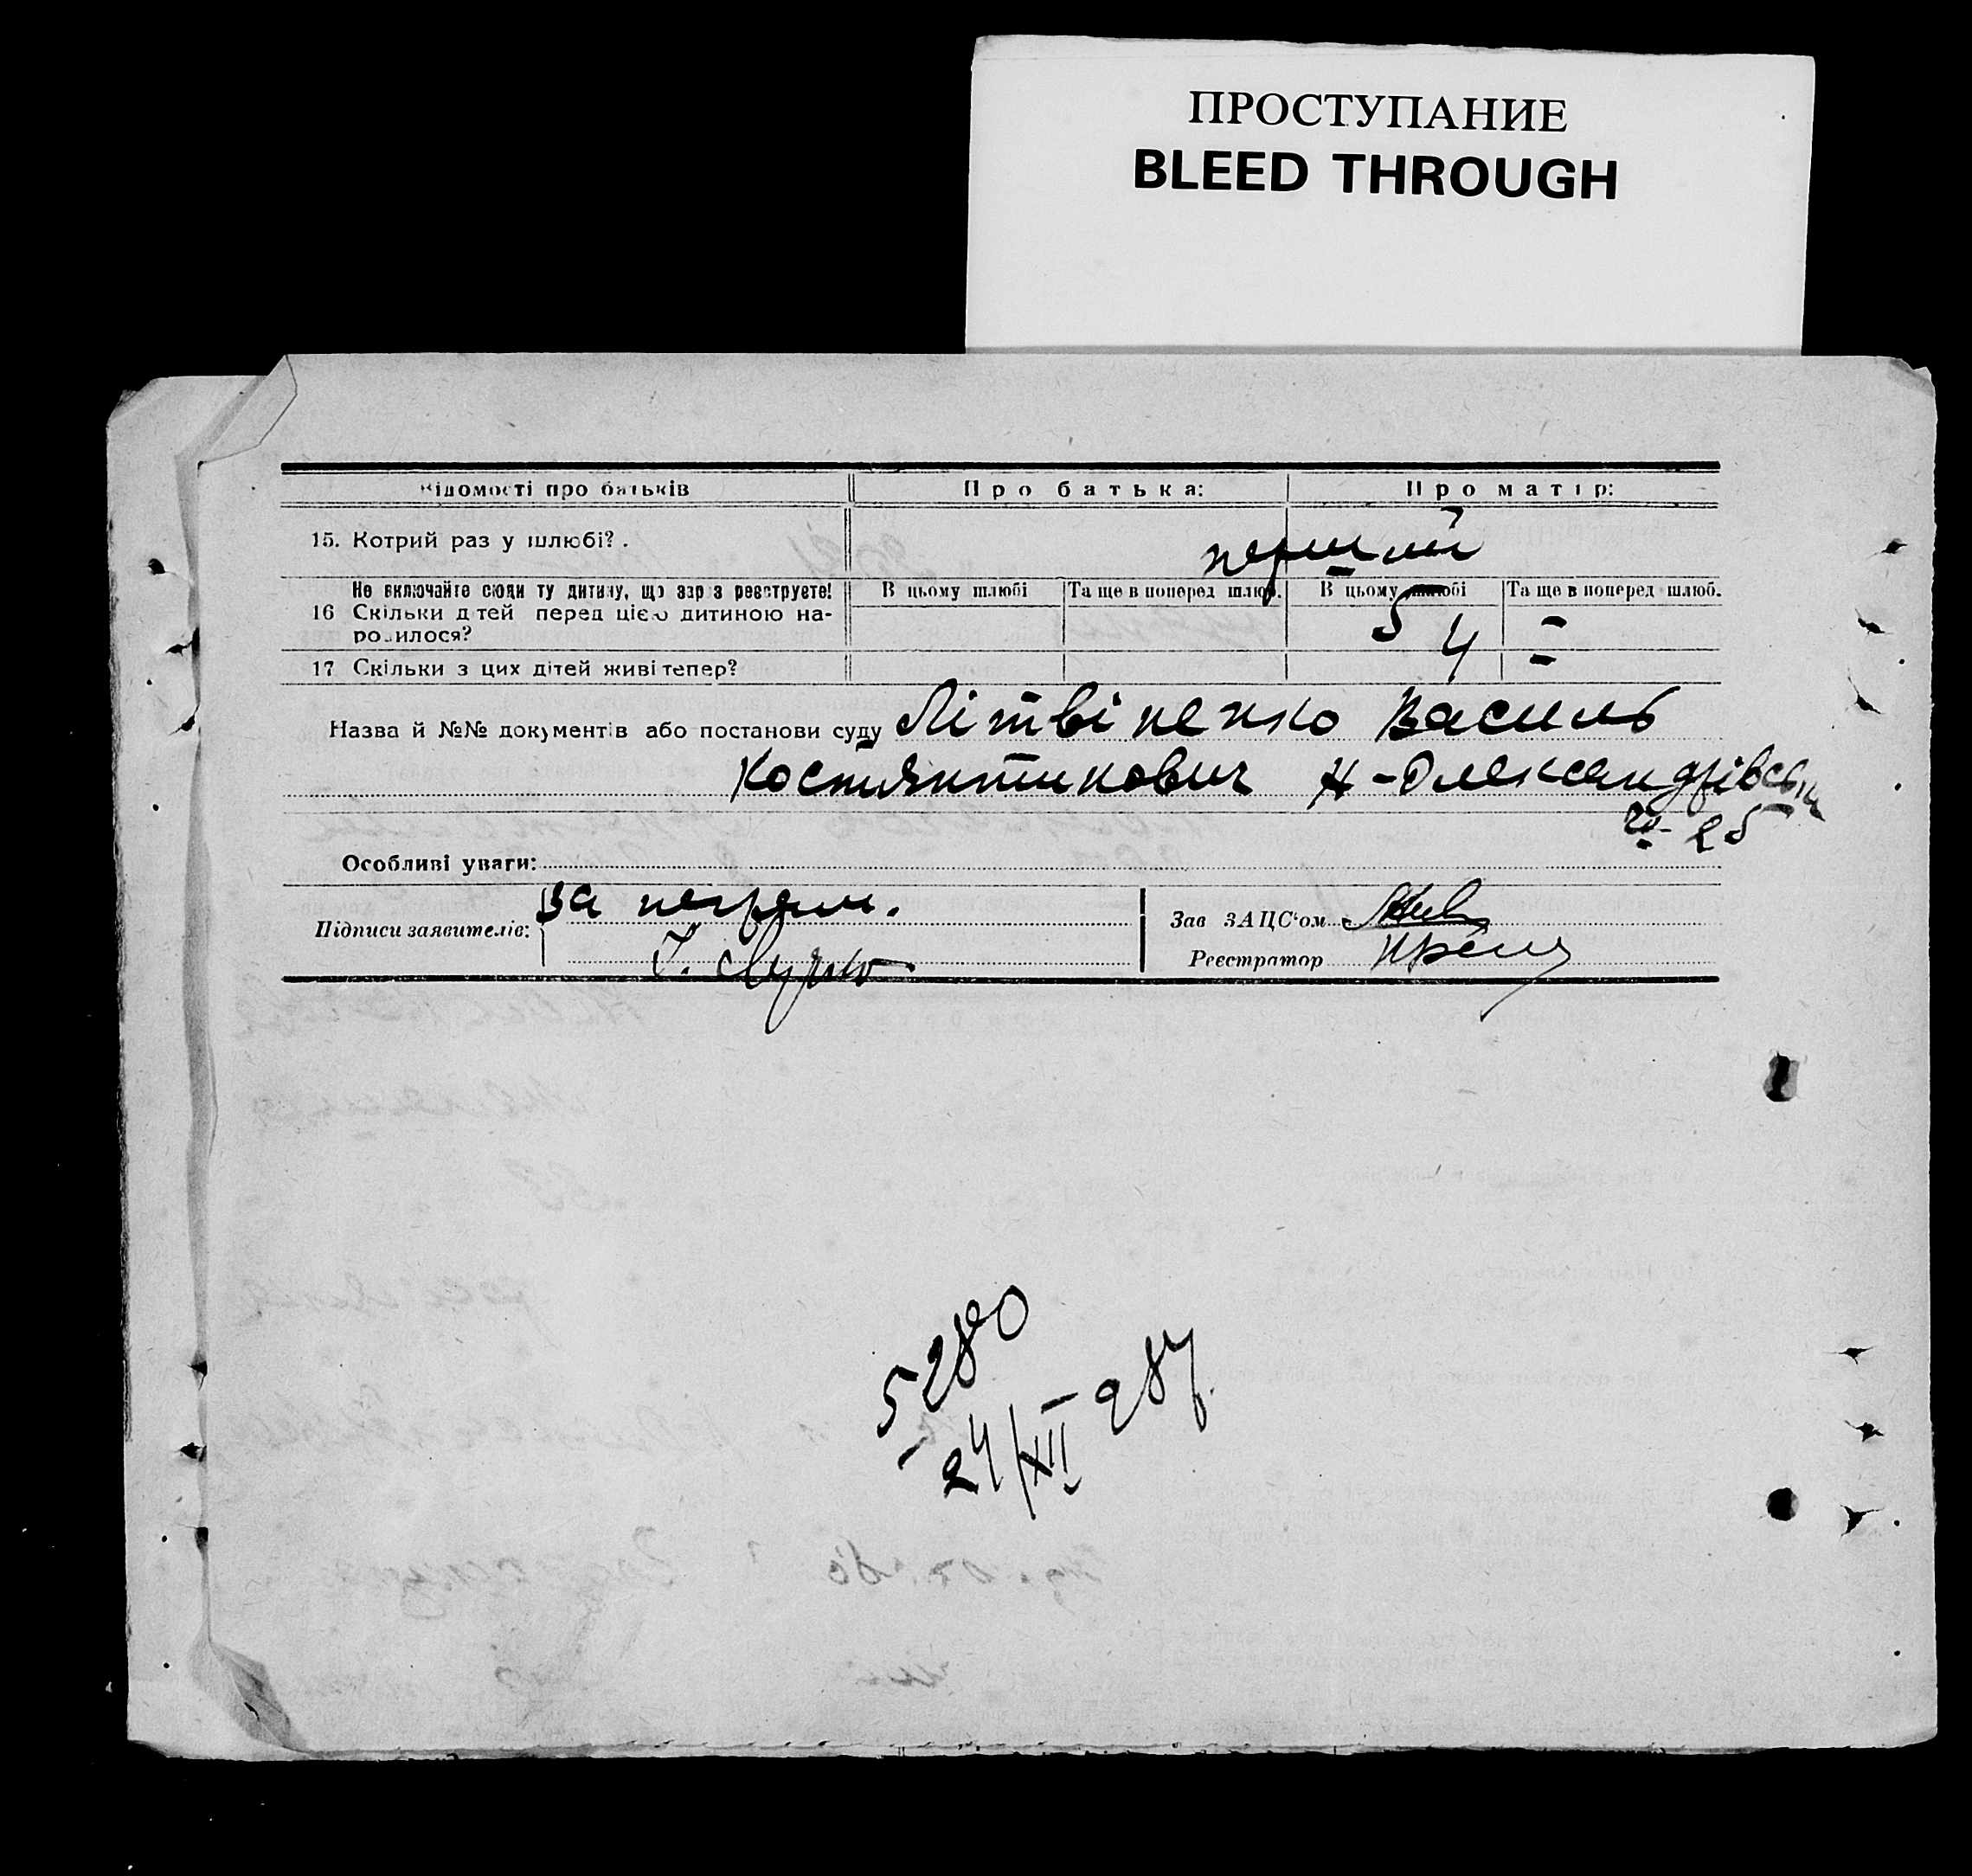 ПРОСТУПАНИЕ
BLEED THROUGH
Відомості про батьків
Про батька:
Про матір:
15. Котрий раз у шлюбі?.
перший
Не включайте сюди ту дитину, що зараз реєструєте!
16 Скільки дітей перед цією дитиною на-
родилося?
В цьому шлюбі
Та ще в поперед шлюб.
В цьому шлюбі
Та ще в поперед шлюб.
5
-
17 Скільки з цих дітей живі тепер?
4
-
Назва й №№ документів або постанови суду Літвіненко Василь
Костянтинович Н-Олександрівська
25
Особливі уваги:
Підписи заявителів:
За
Зав ЗАЦС'ом
Реєстратор
5280
24/XII 28